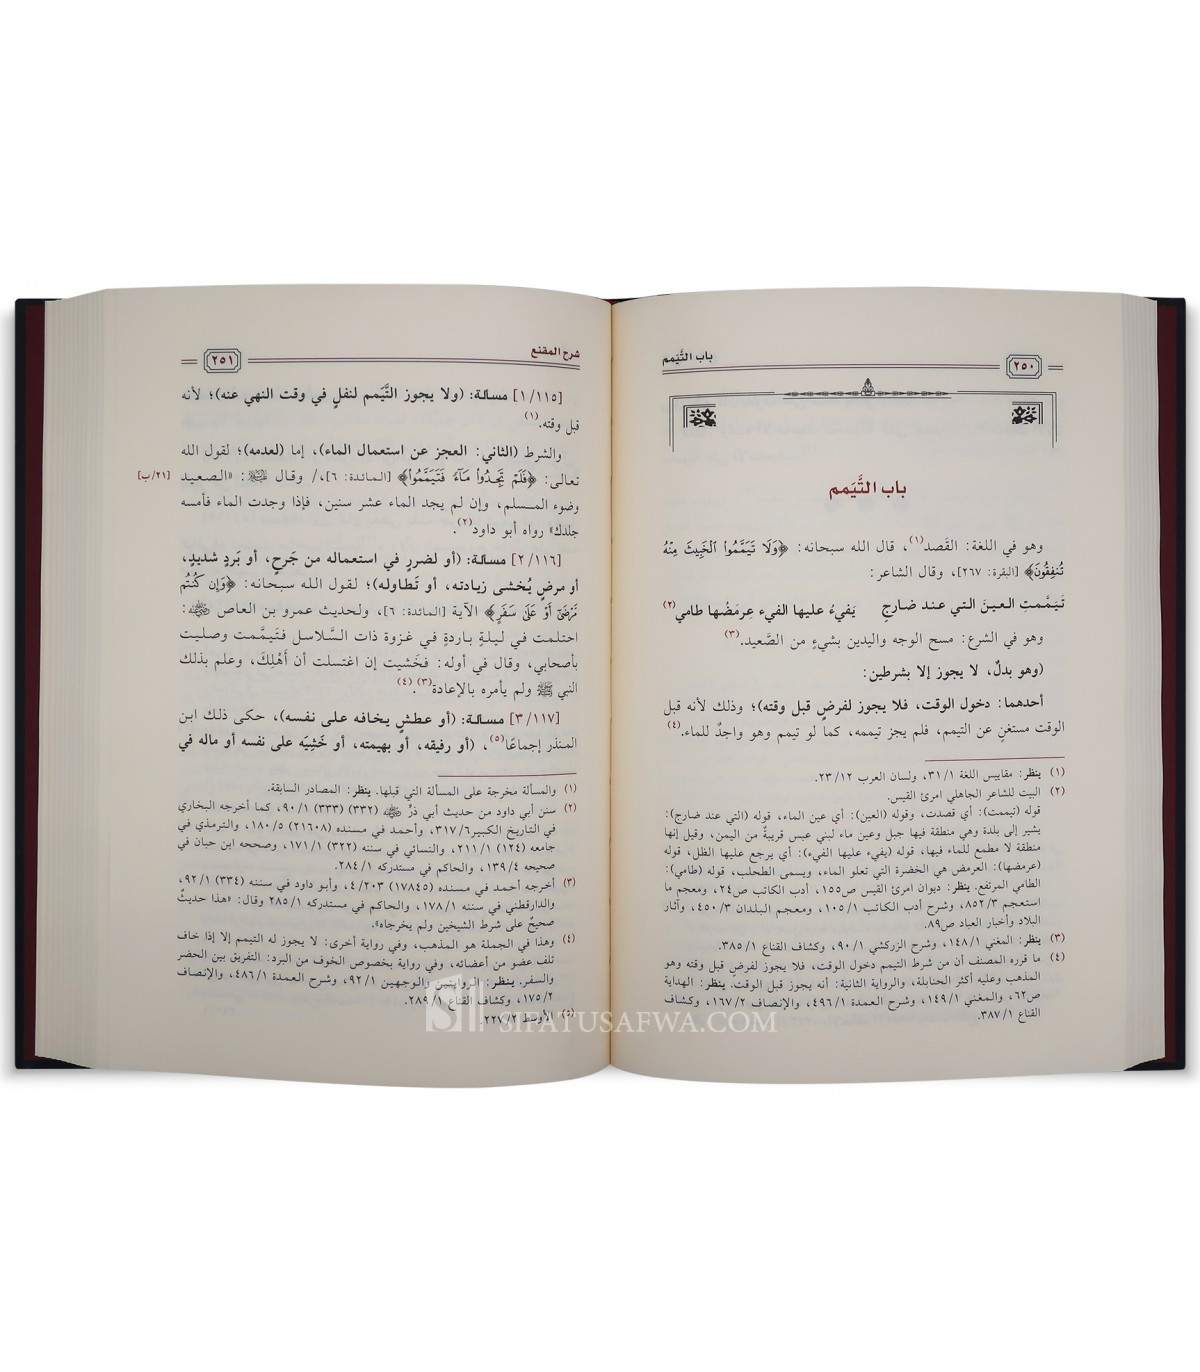 ٢٥٠
باب التَّيَمم
باب التَّيَمم
وهو في اللغة: القَصد(١)، قال الله سبحانه: ﴿وَلَا تَيَمَّمُوا۟ ٱلْخَبِيثَ مِنْهُ
تُنفِقُونَ﴾ [البقرة: ٢٦٧]، وقال الشاعر:
تَيَمَّمتِ العينَ التي عند ضارجٍ يَفيءُ عليها الفيء عِرمَضُها طامي(٢)
وهو في الشرع: مسح الوجه واليدين بشيءٍ من الصَّعيد.(٣)
(وهو بدلٌ، لا يجوز إلا بشرطين:
أحدهما: دخول الوقت، فلا يجوز لفرضٍ قبل وقته)؛ وذلك لأنه قبل
الوقت مستغنٍ عن التيمم، فلم يجز تيممه، كما لو تيمم وهو واجدٌ للماء.(٤)
(١) ينظر: مقاييس اللغة ٣١/١، ولسان العرب ٢٣/١٢.
(٢) البيت للشاعر الجاهلي امرئ القيس.
قوله (تيممت): أي قصدت، وقوله (العين): أي عين الماء، قوله (التي عند ضارج):
يشير إلى بلدة وهي منطقة فيها جبل وعين ماء لبني عبس قريبةٌ من اليمن، وقيل إنها
منطقة لا مطمع للماء فيها، قوله (يفيء عليها الفيء): أي يرجع عليها الظل، قوله
(عرمضها): العرمض هي الخضرة التي تعلو الماء، ويسمى الطحلب، قوله (طامي):
الطامي المرتفع. ينظر: ديوان امرئ القيس ص١٥٥، أدب الكاتب ص٢٤، ومعجم ما
استعجم ٨٥٢/٣، وشرح أدب الكاتب ١٠٥/١، ومعجم البلدان ٤٥٠/٣، وآثار
البلاد وأخبار العباد ص٨٩.
(٣) ينظر: المغني ١٤٨/١، وشرح الزركشي ٩٠/١، وكشاف القناع ٣٨٥/١.
(٤) ما قرره المصنف أن من شرط التيمم دخول الوقت، فلا يجوز لفرضٍ قبل وقته وهو
المذهب وعليه أكثر الحنابلة، والرواية الثانية: أنه يجوز قبل الوقت. ينظر: الهداية
ص٦٢، والمغني ١٤٩/١، وشرح العمدة ٤٩٦/١، والإنصاف ١٦٧/٢، وكشاف
القناع ٣٨٧/١.
شرح المقنع
٢٥١
[١/١١٥] مسألة: (ولا يجوز التَّيَمم لنفلٍ في وقت النهي عنه)؛ لأنه
قبل وقته.(١)
والشرط (الثاني: العجز عن استعمال الماء)، إما (لعدمه)؛ لقول الله
تعالى: ﴿فَلَمْ تَجِدُوا۟ مَآءً فَتَيَمَّمُوا۟﴾ [المائدة: ٦]،/ وقال ﷺ: «الصعيد [٢١/ب]
وضوء المسلم، وإن لم يجد الماء عشر سنين، فإذا وجدت الماء فأمسه
جلدك» رواه أبو داود(٢).
[٢/١١٦] مسألة: (أو لضررٍ في استعماله من جَرحٍ، أو بَردٍ شديدٍ،
أو مرضٍ يُخشى زيادته، أو تَطاوله)؛ لقول الله سبحانه: ﴿وَإِن كُنتُم
مَّرْضَىٰٓ أَوْ عَلَىٰ سَفَرٍ﴾ الآية [المائدة: ٦]، ولحديث عمرو بن العاص ﵁:
احتلمت في ليلةٍ باردةٍ في غزوة ذات السَّلاسل فتَيممت وصليت
بأصحابي، وقال في أوله: فخَشيت إن اغتسلت أن أَهْلِكَ، وعلم بذلك
النبي ﷺ ولم يأمره بالإعادة(٣).(٤)
[٣/١١٧] مسألة: (أو عطشٍ يخافه على نفسه)، حكى ذلك ابن
المنذر إجماعًا(٥)، (أو رفيقه، أو بهيمته، أو خَشِيَه على نفسه أو ماله في
(١) والمسألة مخرجة على المسألة التي قبلها. ينظر: المصادر السابقة.
(٢) سنن أبي داود من حديث أبي ذرٍّ ﵁ (٣٣٢) (٣٣٣) ٩٠/١، كما أخرجه البخاري
في التاريخ الكبير٣١٧/٦، وأحمد في مسنده (٢١٦٠٨) ١٨٠/٥، والترمذي في
جامعه (١٢٤) ٢١١/١، والنسائي في سننه (٣٢٢) ١٧١/١، وصححه ابن حبان في
صحيحه ١٣٩/٤، والحاكم في مستدركه ٢٨٤/١.
(٣) أخرجه أحمد في مسنده (١٧٨٤٥) ٢٠٣/٤، وأبو داود في سننه (٣٣٤) ٩٢/١،
والدارقطني في سننه ١٧٨/١، والحاكم في مستدركه ٢٨٥/١ وقال: «هذا حديثٌ
صحيحٌ على شرط الشيخين ولم يخرجاه».
(٤) وهذا في الجملة هو المذهب، وفي رواية أخرى: لا يجوز له التيمم إلا إذا خاف
تلف عضو من أعضائه، وفي رواية بخصوص الخوف من البرد: التفريق بين الحضر
والسفر. ينظر: الروايتين والوجهين ٩٢/١، وشرح العمدة ٤٨٦/١، والإنصاف
١٧٥/٢، وكشاف القناع ٢٨٩/١.
(٥) الأوسط ٢٢٧/٢.
SIFATUSAFWA.COM